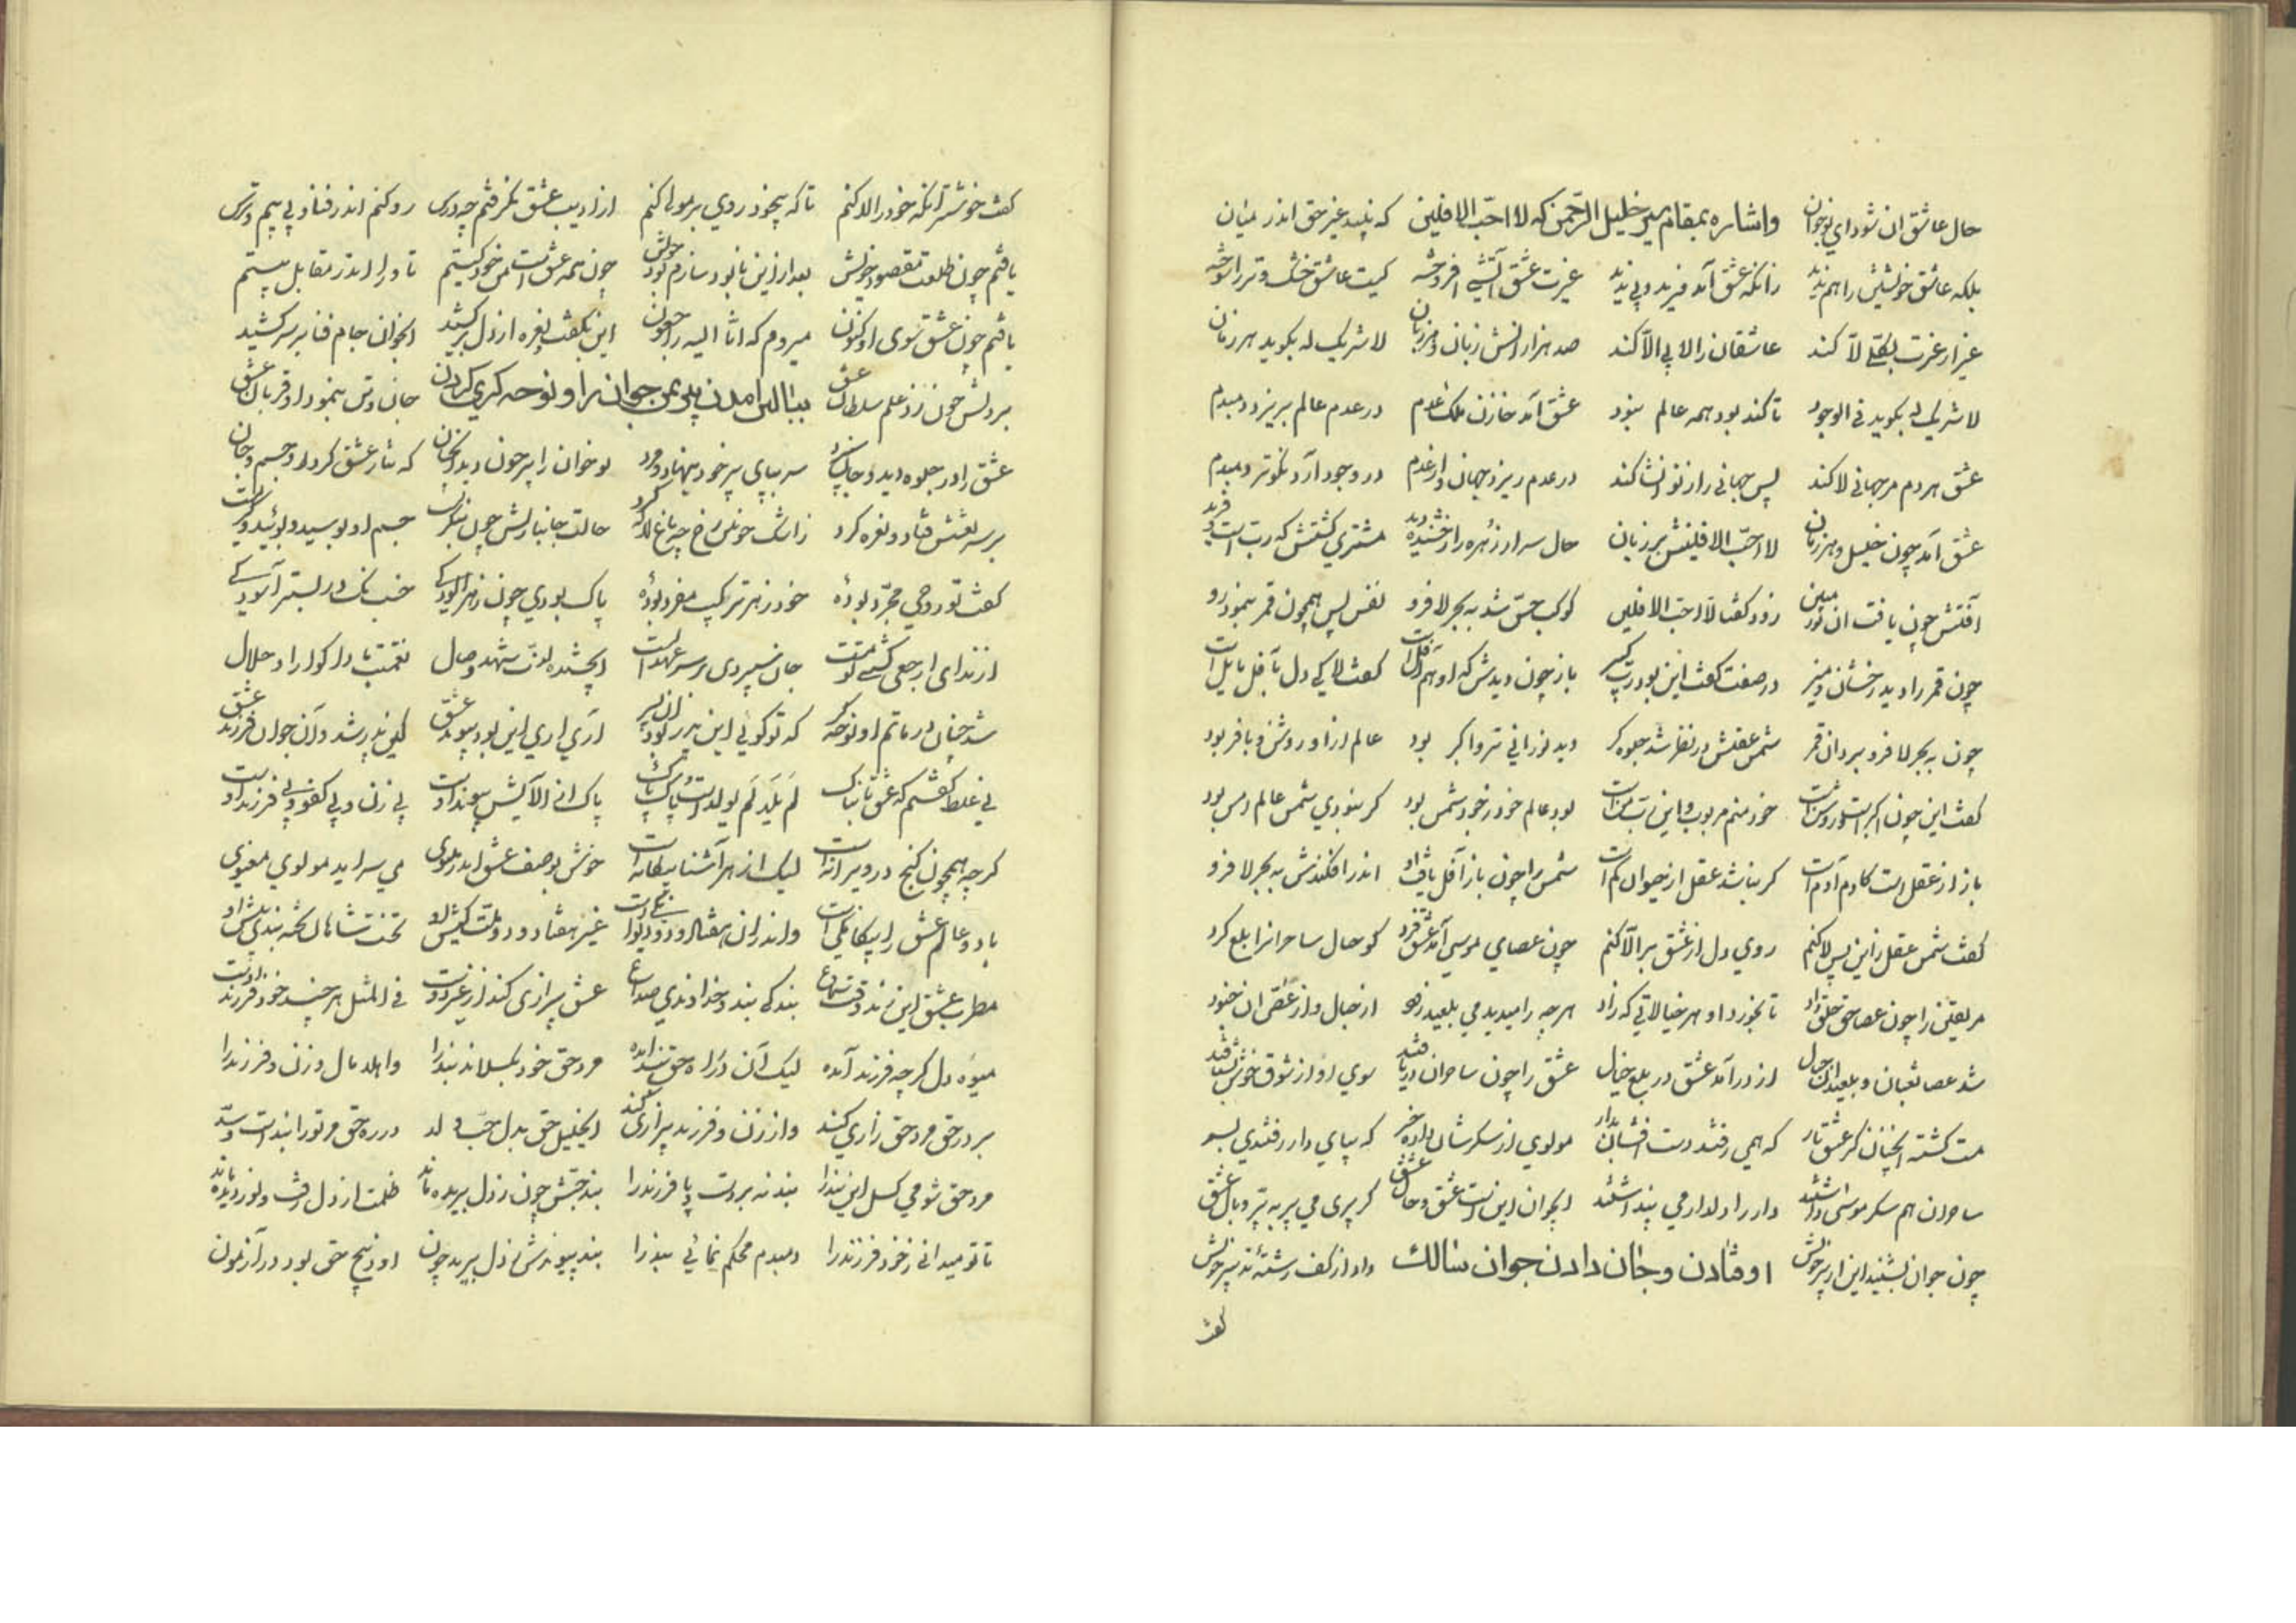 حال عاشق ان شود ای نوجوان واشاره بمقام سیر خلیل الرّحمن که لا احبّ الافلین که نبیند غیر حق اندر میان
بلکه عاشق خویشتن را هم ندید زانکه عشق آمد فرید و بی ندید غیرت عشق آتشی افروخته کیت عاشق خشک و تر را سوخته
غیر از غیرت بکلّی لا کند عاشقان را لا بی الّا کند صد هزارانش زبان و هر زبان لا شریک له بکوید هر زمان
لا شریک له بکوید فی الوجود تا کند بود همه عالم نبود عشق آمد خازن ملک عدم در عدم عالم بریزد دمبدم
عشق هر دم مر جهانی لا کند پس جهانی را ز نو انشا کند در عدم ریزد جهان را از عدم در وجود آرد نکوتر دمبدم
عشق آمد چون خلیل و هر زمان لا احبّ الافلینش بر زبان حال سر از زهره را رخشنده دید مشتری کشتش که رب است
آفلش چون یافت ان نور مبین زود کفتا لا احبّ الافلین کوکب حسّ شد به بحر لا فرو نفس پس همچون قمر بنمود رو
چون قمر را دید رخشان و منیر در صفت کفت این بود رب کبیر باز چون دیدش که او هم آفل است کفت لا کی دل بآفل مایل است
چون به بحر لا فرو برد ان قمر شمس عقلش در نظر شد جلوه کر دید نورانی تر و اکبر بود عالم از او روشن و بافر بود
کفت این چون اکبر است و روشن است خود منم مربوب و این رب من است بود عالم خود ز خود شمس بود کر نبودی شمس عالم دمس بود
باز از عقل است کادم آدم است کر نباشد عقل از حیوان کم است شمس را چون باز آفل یافت او اندر افکندش به بحر لا فرو
کفت شمس عقل را این پس لا کنم روی دل از عشق بر الّا کنم چون عصای موسی آمد عشق فرد کو حبال ساحرانرا بلع کرد
مر یقین را چون عصا حق خلق داد تا بخورد او هر خیالاتی که زاد هر چه را میدید می بلعید زو از حبال و از عصی ان خود
شد عصا ثعبان و بلعید ان حبال از در آمد عشق در بلع خیال عشق را چون ساحران دریافتند سوی او از شوق خوش بشتافتند
مست کشته انچنان کز عشق یار که همی رفتند دست افشان بدار مولوی از سکرشان داده خبر که بپای دار رفتندی بسر
ساحران هم سکر موسی داشتند دار را دلدار می پنداشتند ایجوان این است عشق و حال عشق کر پری می پر به پرّ و بال عشق
چون جوان بشنید این از پیر خویش اوفتادن و جان دادن جوان سالک داد از کف رشته تدبیر خویش
کفت
کفت خوشتر انکه خود را لا کنم تا که بیخود روی بر مولا کنم از ادیب عشق بکرفتم چه درس رو کنم اندر فنا و بی بیم و ترس
یافتم چون طلعت مقصود خویش بعد ازین با بود سازم بود خویش چون همه عشق است من خود کیستم تا ورا اندر مقابل بیستم
یافتم چون عشق سوی او کنون میروم که انّا الیه راجعون این بکفت و نعره از دل بر کشید انجوان جام فنا بر سر کشید
بر دلش چون زد علم سلطان عشق ببالین امدن پیر بمن جوان را و نوحه کری کردن جان و تن بنمود او قربان عشق
عشق را در جلوه دید و جان سپرد سر بپای پیر خود بنهاد و مرد نوجوان را پیر چون دید انچنان که نثار عشق کرد او جسم و جان
بر سر نعشش فتاد و نعره کرد ز اشک خونین رخ چه باغ لاله کرد حالت جانبازیش چون بنکریست جسم او بوسید و بوئید و کریست
کفت تو روحی مجرّد بودۀ خود ز هر ترکیب مفرد بودۀ پاک بودی چون ز هر الودکی خسب نک در بستر آسودکی
از ندای ارجعی کشتی تو مست جان سپردی بر سر عهد الست ایچشیده لذّت شهد وصال نعمتت بادا کوارا و حلال
شد چنان در ماتم او نوحه کر که تو کوئی این پدر بود ان پسر آری آری این بود پیوند عشق کین پدر شد وآن جوان فرزند عشق
نی غلط کفتم که عشق تابناک لم یلد لم یولد است و پاک پاک پاک از آلایش پیوند اوست بی زن و بی کفو و بی فرزند اوست
کر چه همچون کنج در ویرانه است لیک از هر آشنا بیکانه است خوش بوصف عشق اندر مثنوی می سراید مولوی معنوی
با دو عالم عشق را بیکانکی است واندر ان هفتاد و دو دیوانکی است غیر هفتاد و دو ملّت کیش او تخت شاهان تخته بندی پیش او
مطرب عشق این زند وقت سماع بندکی بند و خداوندی صداع عشق بیزاری کند از غیر دوست فی المثل هر چند خود فرزند اوست
میوه دل کرچه فرزند آمده لیک آن در راه حق بند آمده مرد حق خود بکسلاند بند را واهلد مال و زن و فرزند را
بر در حق مرد حق زاری کند وز زن و فرزند بیزاری کند ایخلیل حق بدل حبّ ولد در ره حق مر تو را بند است و سدّ
مرد حق شو می کسل این بند را بند نه بر دست و پا فرزند را بند حبّش چون ز دل ببریده ماند ظلمت از دل رفت و نور دیده ماند
تا تو میدانی ز خود فرزند را دمبدم محکم نمائی بند را بند پیوندش ز دل ببرید چون او ذبیح حق بود در آزمون